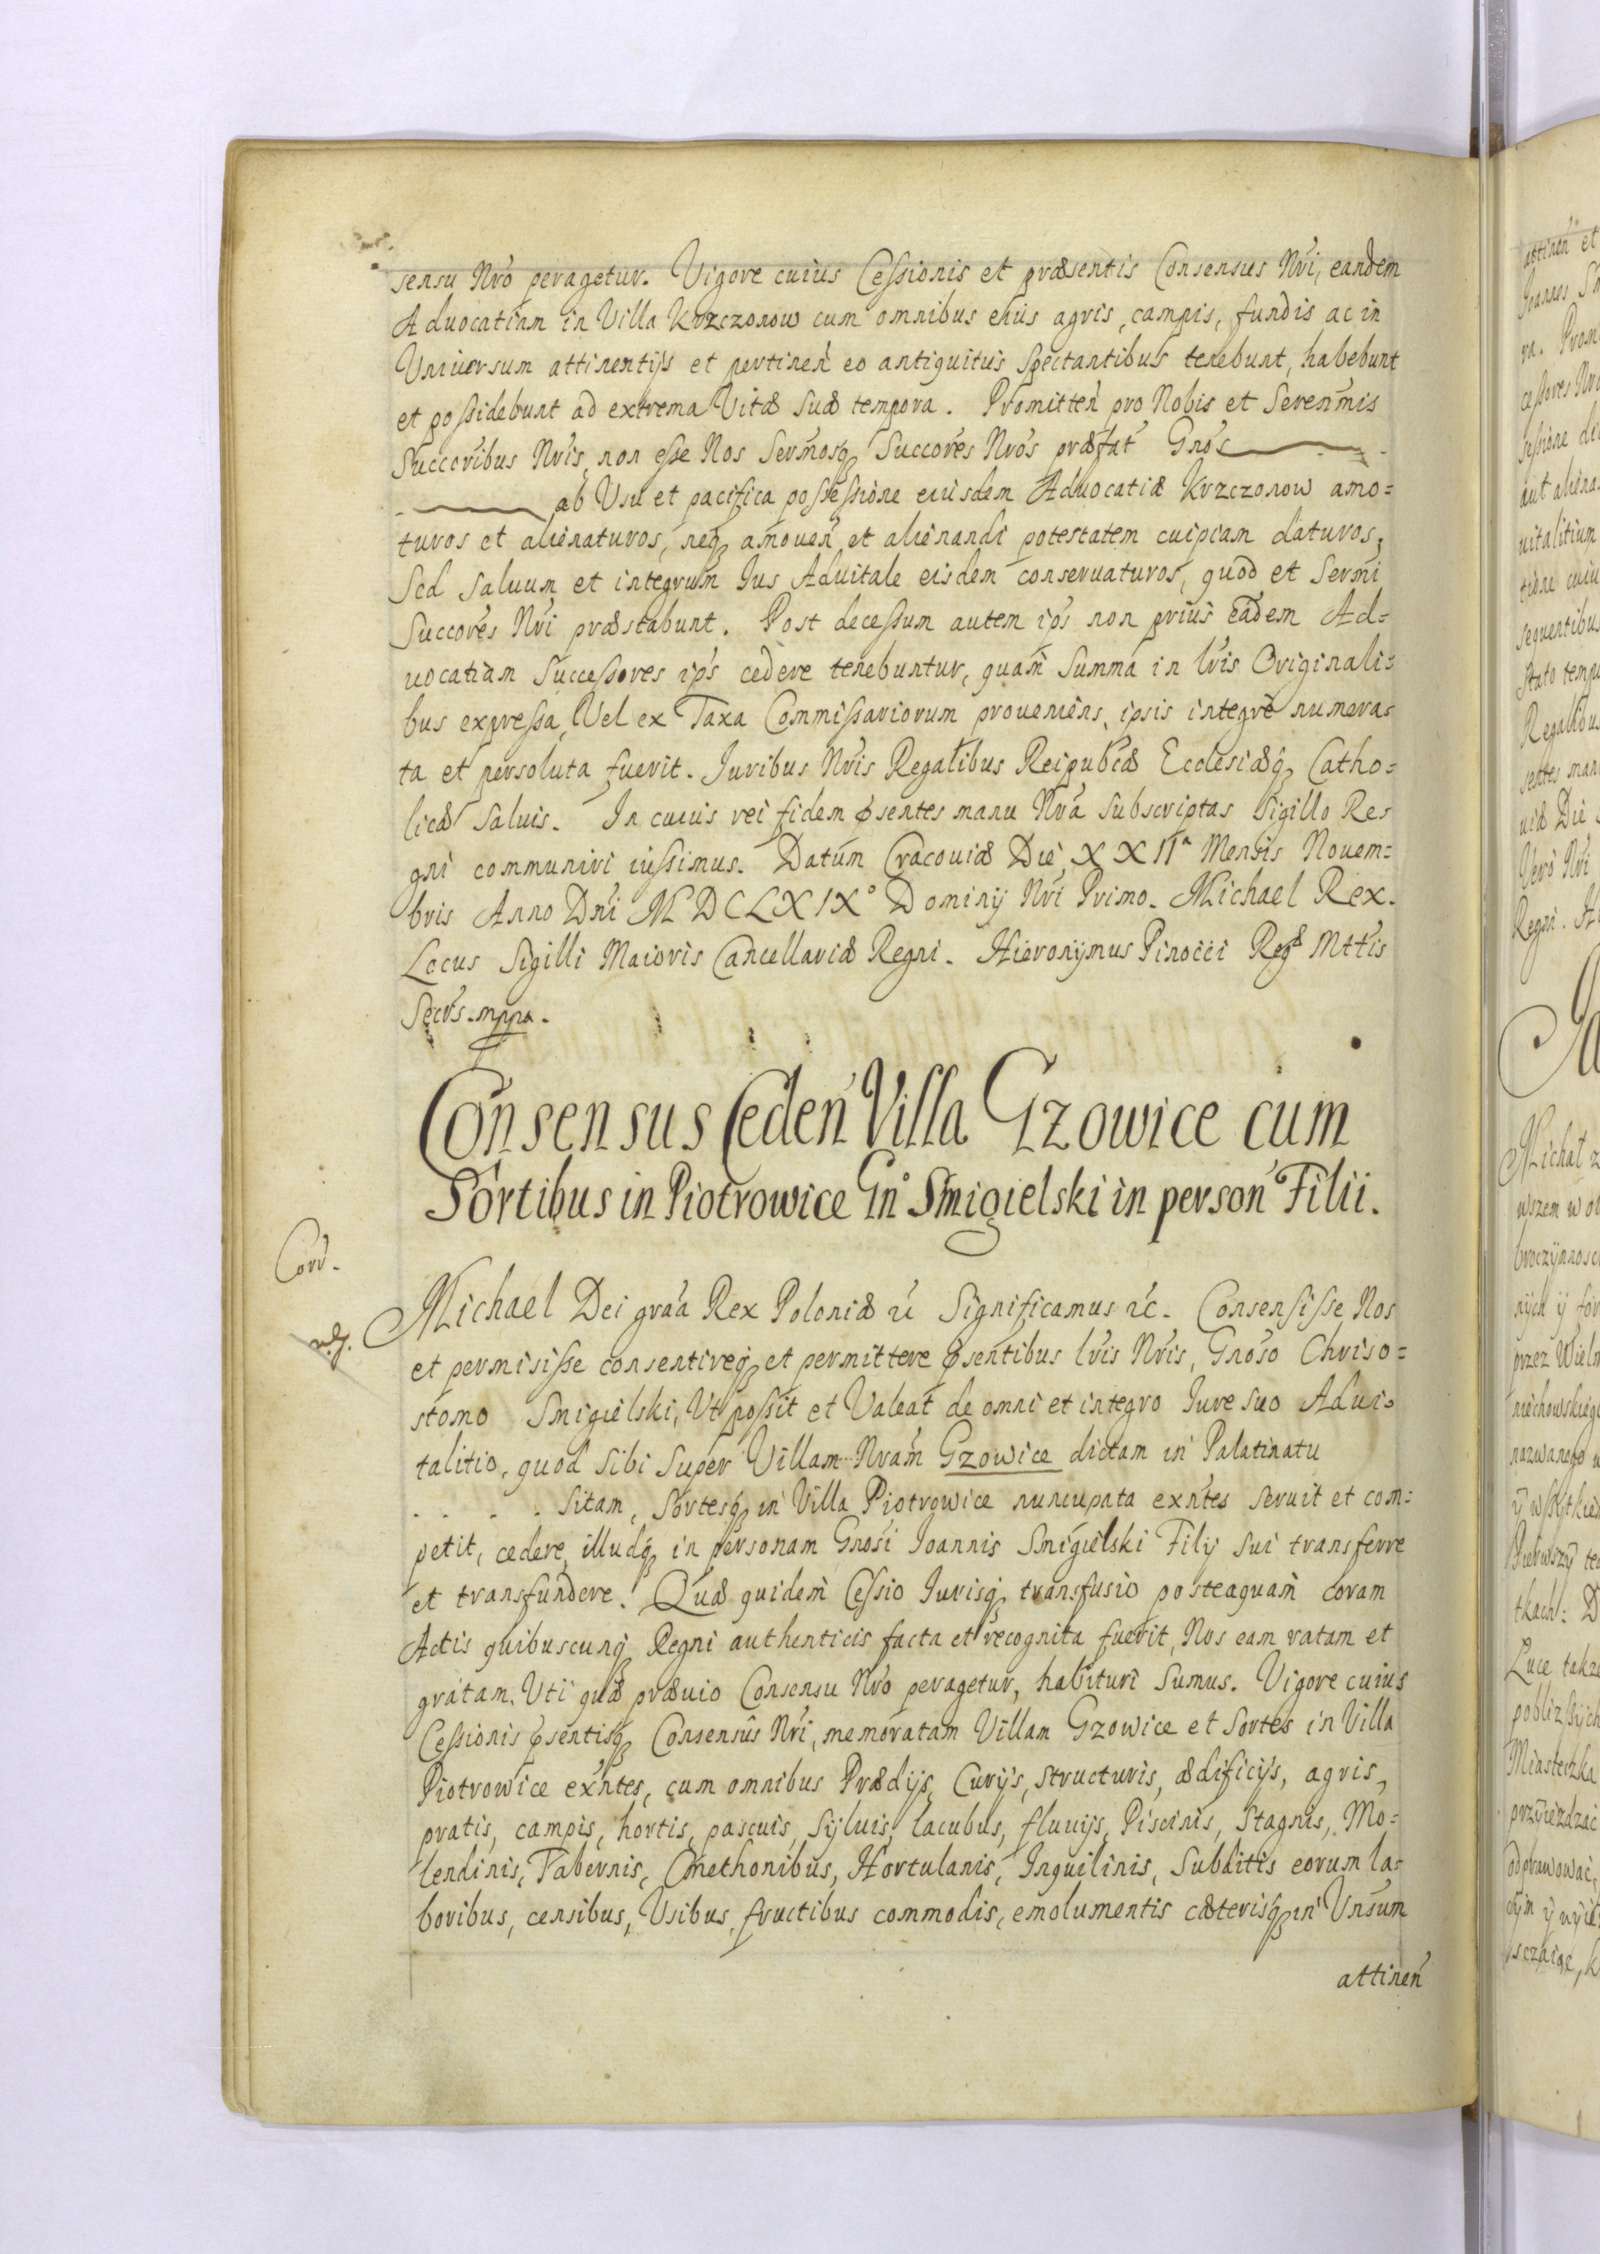 sensu Nro peragetur. Vigore cuius Cessionis et præsentis Consensus Nri, eandem
Aduocatiam in Villa Krzczonow cum omnibus eius agris, campis, fundis ac in
Vniuersum attinentijs et pertinen̄ eo antiquitus spectantibus tenebunt, habebunt
et possidebunt ad extrema Vitæ suæ tempora. Promitten̄ pro Nobis et Seren̄mis
Succoribus Nris, non esse Nos Sermosq₃ Succores Nros præfat Gnos
ab Vsu et pacifica possessione eiusdem Aduocatiæ Krzczonow amo=
turos et alienaturos, neq₃ amouen̄ et alienandi potestatem cuipiam daturos,
Sed saluum et integrum Ius Aduitale eisdem conseruaturos, quod et Sermi
Succores Nri præstabunt. Post decessum autem ips non prius eadem Ad=
uocatiam Successores ips cedere tenebuntur, quam Summa in lris Originali=
bus expressa, Vel ex Taxa Commissariorum proueniens, ipsis integre numera=
ta et persoluta fuerit. Iuribus Nris Regalibus Reipubcæ Ecclesiæq₃ Catho=
licæ saluis. In cuius rei fidem p̄sentes manu Nra subscriptas Sigillo Re=
gni communiri iussimus. Datum Cracouiæ Die XXIIa Mensis Nouem=
bris Anno Dni MDCLXIXo Dominij Nri Primo. Michael Rex.
Locus Sigilli Maioris Cancellariæ Regni. Hieronymus Pinocci Regæ Mttis
Secrs. mppa.
Consensus Ceden̄ Villa Gzowice cum
Sortibus in Piotrowice Gno Smigielski in person̄ Filii.
Corr.
Michael Dei gra̅a Rex Poloniæ &c Significamus &c. Consensisse Nos
et permisisse consentireq₃ et permittere p̄sentibus lris Nris, Gnoso Chriso=
stomo Smigielski, Vt possit et Valeat de omni et integro Iure suo Adui=
talitio, quod sibi super Villam Nram Gzowice dictam in Palatinatu
. . . . . sitam, Sortesq₃ in Villa Piotrowice nuncupata exntes seruit et com=
petit, cedere, illudq₃ in personam Gnosi Ioannis Smigielski Filij sui transferre
et transfundere. Quæ quidem Cessio Iurisq₃ transfusio posteaquam coram
Actis quibuscunq₃ Regni authenticis facta et recognita fuerit, Nos eam ratam et
gratam, Vti quæ præuio Consensu Nro peragetur, habituri sumus. Vigore cuius
Cessionis p̄sentisq₃ Consensûs Nri, memoratam Villam Gzowice et Sortes in Villa
Piotrowice exntes, cum omnibus Prædijs, Curijs, structuris, ædificijs, agris,
pratis, campis, hortis, pascuis, Syluis, lacubus, fluuijs, Piscinis, Stagnis, Mo=
lendinis, Tabernis, Cmethonibus, Hortulanis, Inquilinis, Subditis eorum la=
boribus, censibus, Vsibus, fructibus commodis, emolumentis cæterisq₃ in Vnsum
attinen̄